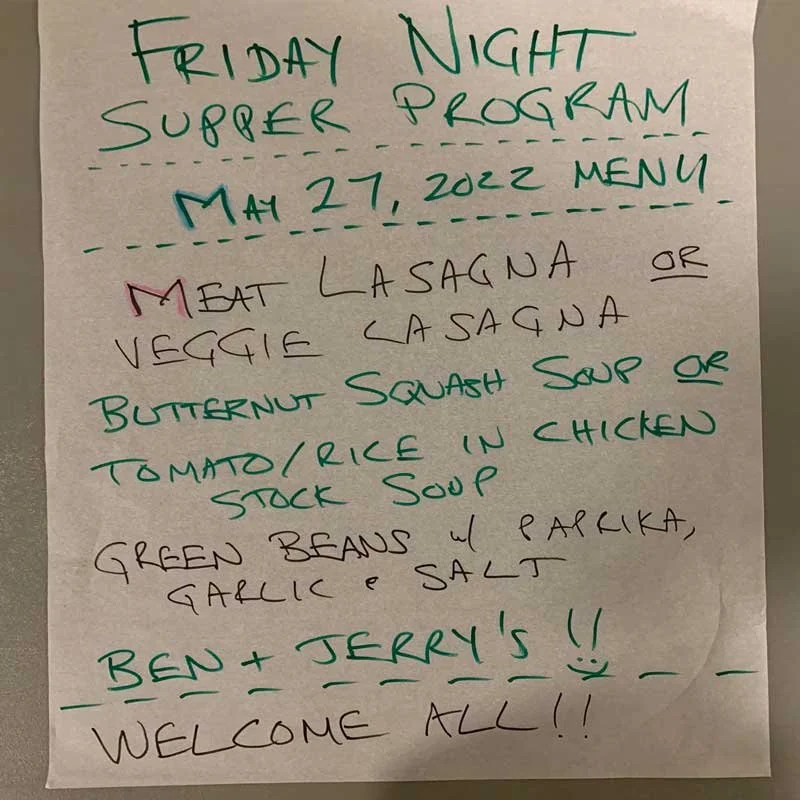 FRIDAY NIGHT
SUPPER PROGRAM
MAY 27, 2022 MENU
MEAT LASAGNA OR
VEGGIE LASAGNA
BUTTERNUT SQUASH SOUP OR
TOMATO/RICE IN CHICKEN
STOCK SOUP
GREEN BEANS w/ PAPRIKA,
GARLIC & SALT
BEN + JERRY'S !!
WELCOME ALL!!